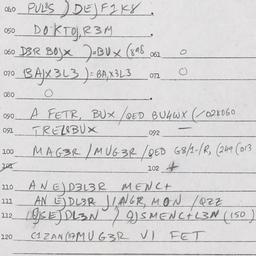 060 PULS ) DEJFIKY
050 DOKTOJ,R3M
060 D3R BOJX )=BUX (898 061 0
070 BAJX3L3 )=BAJX3L3 071 0
080 0
090 A FETR, BUX /QED BU4WX (/028060
091 TREL8BUX 092 —
100 MAG3R / MUG3R /QED G8/1-/R, (249 (013
101 102
110 AN EJD3L3R MENC+
111 AN EJDL3R JINGR, MON /QZZ
112 EJDL3N ) GJSMENC+L3N (150)
120 MUG3R VI FET